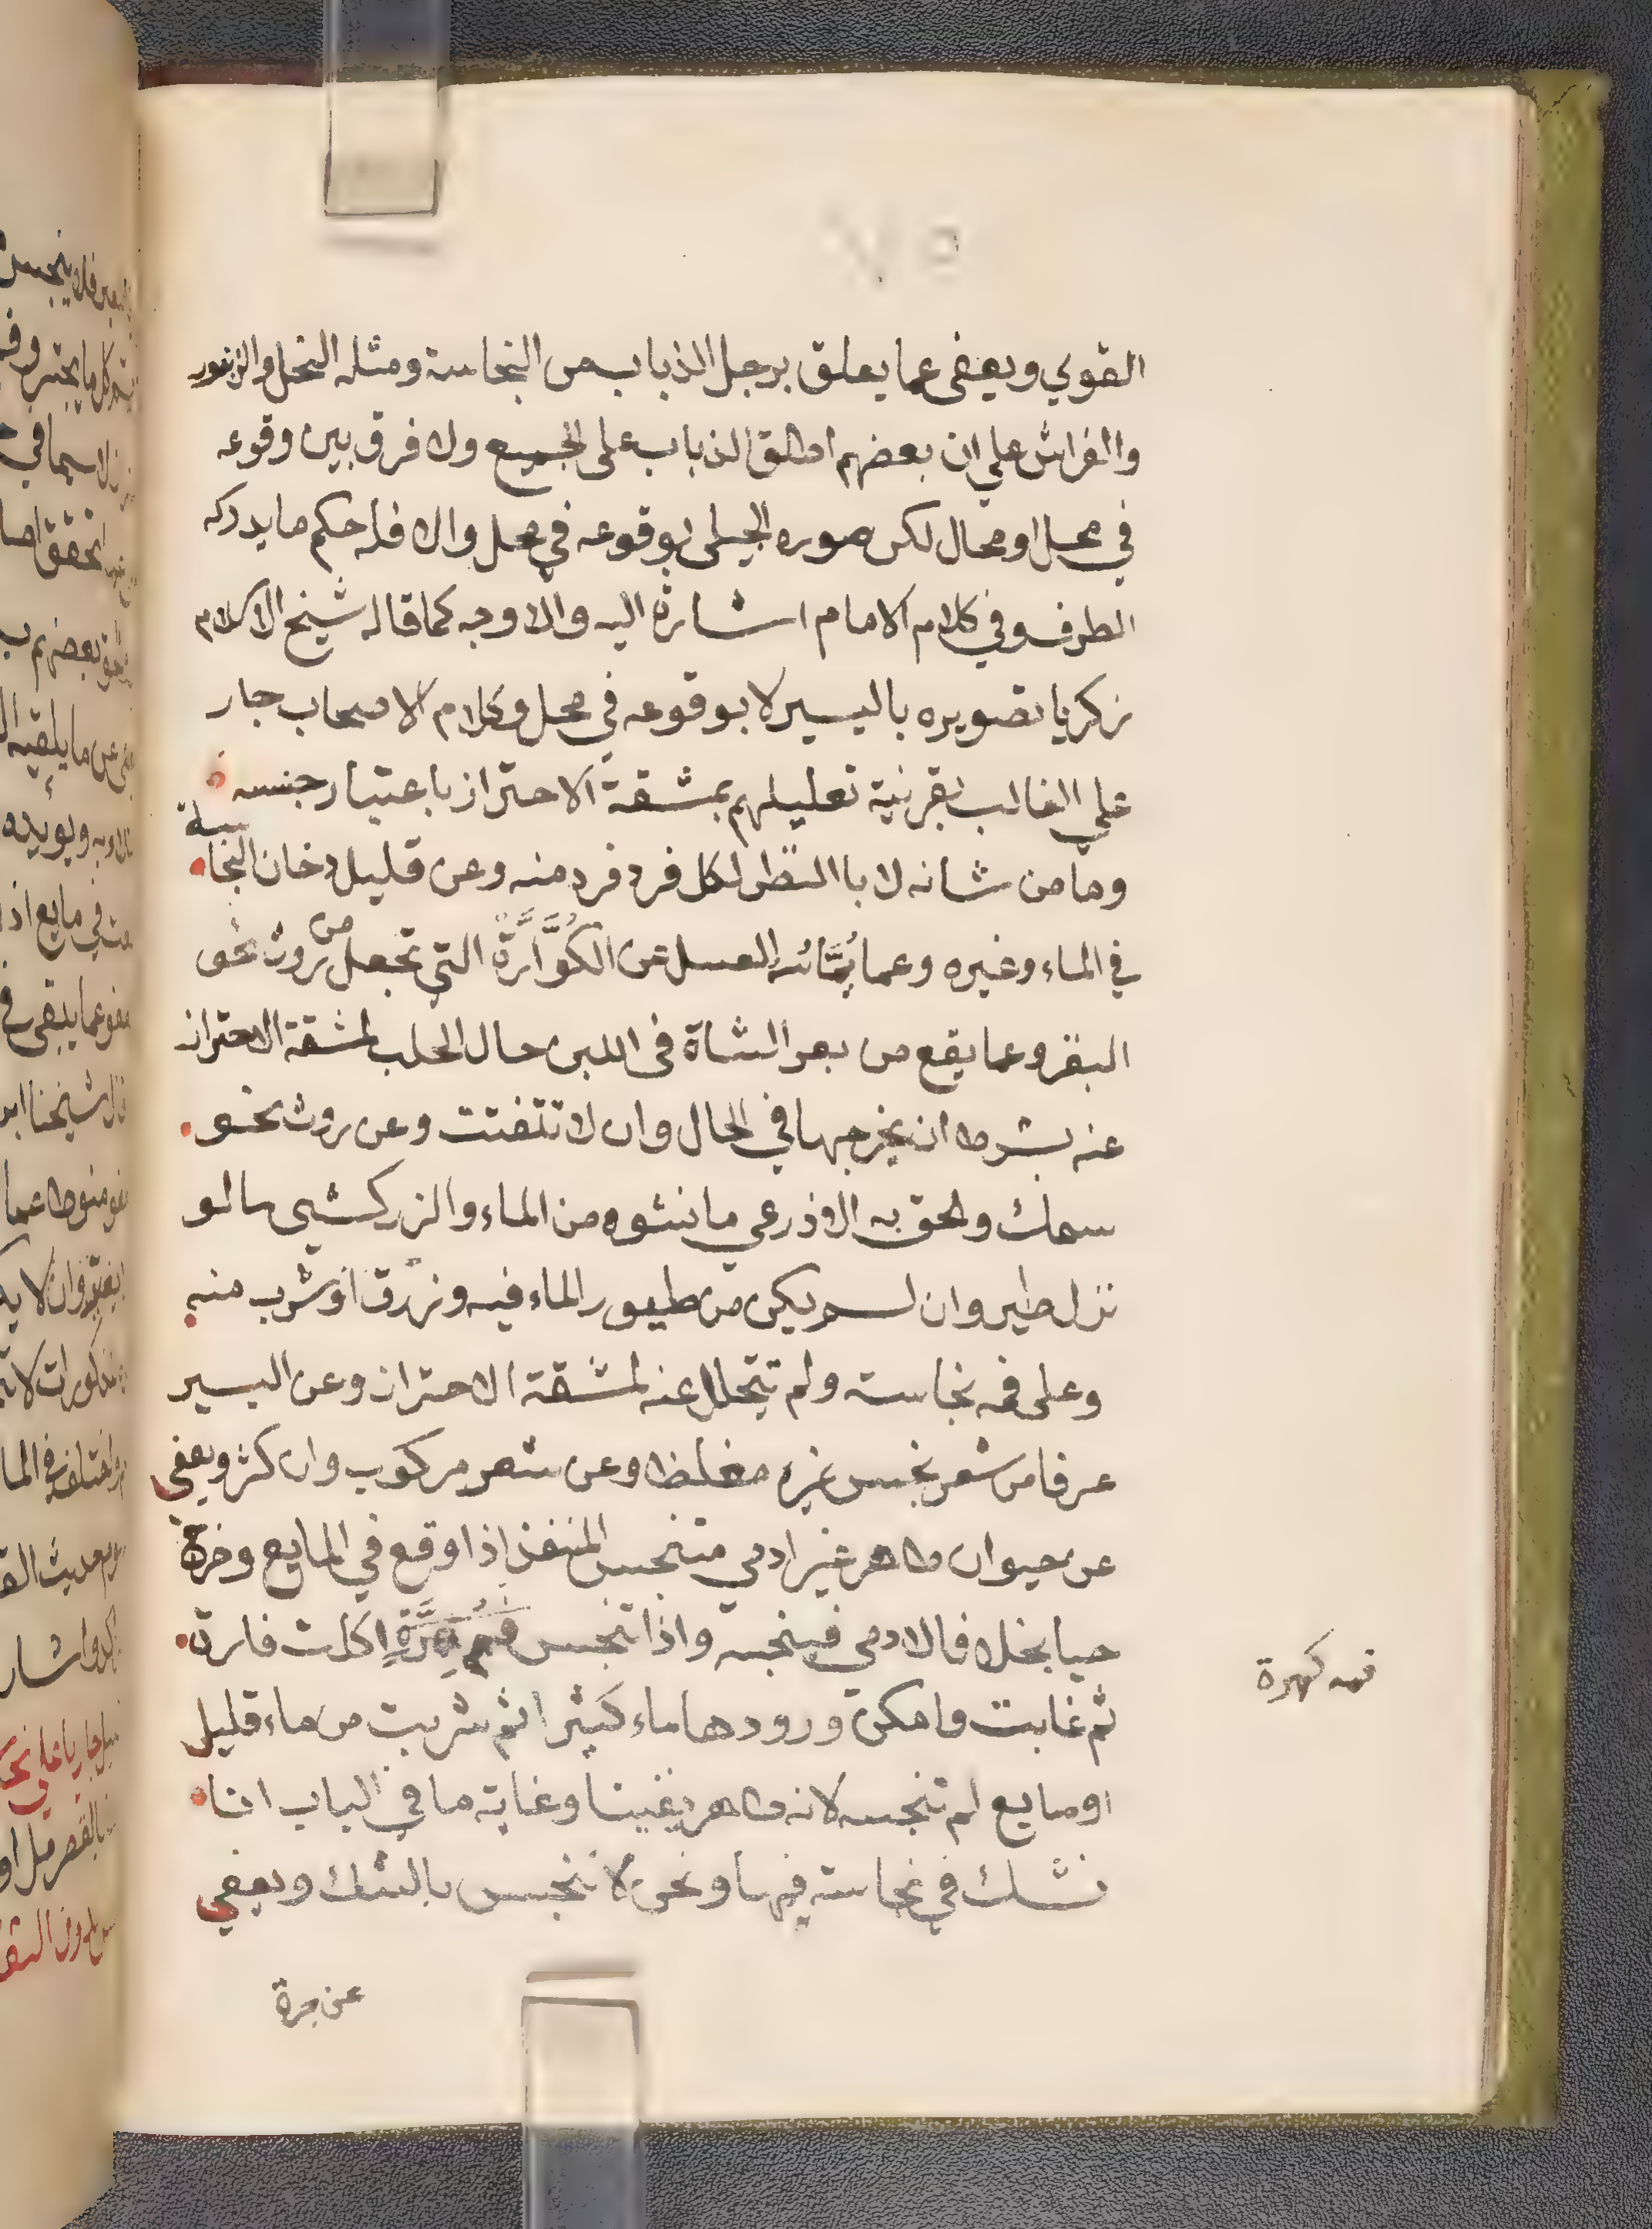 القوي ويعفى عما يعلق برجل الذباب من النجاسة ومثله النحل والزنبور
والفراش علي ان بعضهم اطلق الذباب على الجميع ولا فرق بين وقوعه
في محل او محال لكن صوره الجيلى بوقوعه في محل والا فله حكم ما يدركه
الطرف وفي كلام الامام اشارة اليه والاوجه كما قاله شيخ الاسلام
زكريا تصويره باليسير لا بوقوعه في محل وكلام الاصحاب جار
علي الغالب بقرينة تعليلهم بمشقة الاحتراز باعتبار جنسه
وما من شانه لا باالنظر لكل فرد فرد منه وعن قليل دخان النجاسة
في الماء وغيره وعما يماسه العسل من الكوارة التي تجعل من روث نحو
البقر وعما يقع من بعر الشاة في اللبن حال الحلب لمشقة الاحتراز
عنه بشرط ان يخرجها في الحال وان لا تتفتت وعن روث نحو
سمك والحق به الاذرعي ما نشوه من الماء والزركشي مالو
نزل طير وان لم يكن من طيور الماء فيه وزرق او شرب منه
وعلى فمه نجاسة ولم تتحلل عنه لمشقة الاحتراز وعن اليسير
عرفا من شعر نجس غيره مغلظ وعن شعر مركوب وان كثر ويعفي
عن حيوان طاهر غير ادمي متنجس المنفذ اذا وقع في المايع وخرج
حيا بخلاف الادمي فينجسه واذا تنجس فم هرة اكلت فارة
ثم غابت وامكن ورودها ماء كثيرا ثم شربت من ماء قليل
او مايع لم تنجسه لانه طاهر يقينا وغاية ما في الباب اننا
نشك في نجاسة فيها ونحن لا ننجس بالشك ويعفي
عن جرة
فمه كهرة